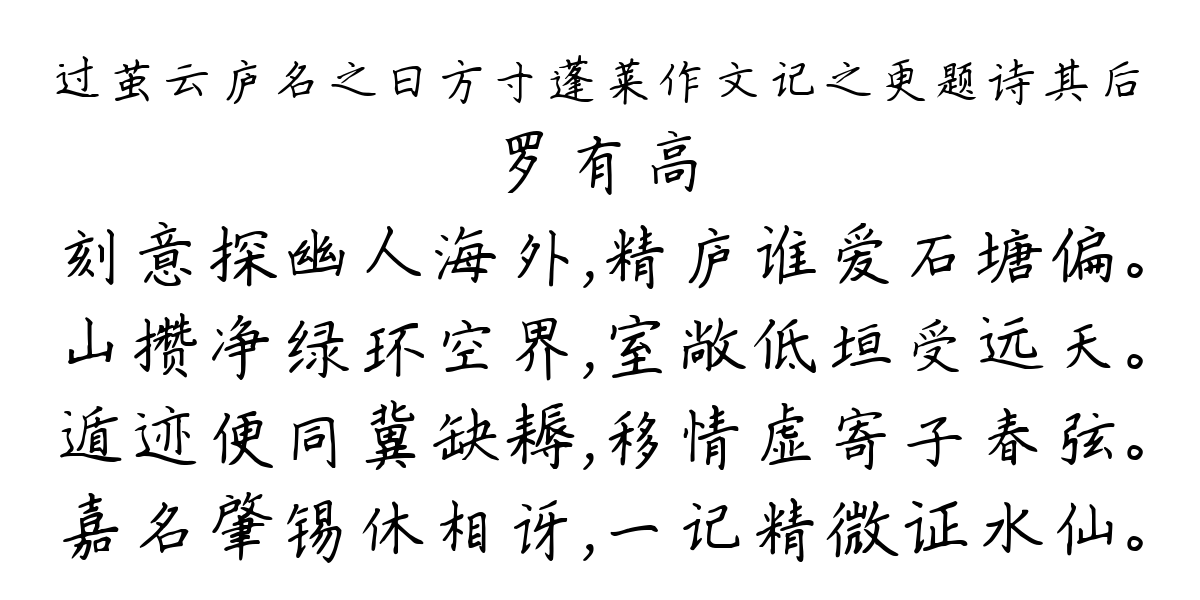 过茧云庐名之曰方寸蓬莱作文记之更题诗其后
罗有高
刻意探幽人海外,精庐谁爱石塘偏。
山攒净绿环空界,室敞低垣受远天。
遁迹便同冀缺耨,移情虚寄子春弦。
嘉名肇锡休相讶,一记精微证水仙。